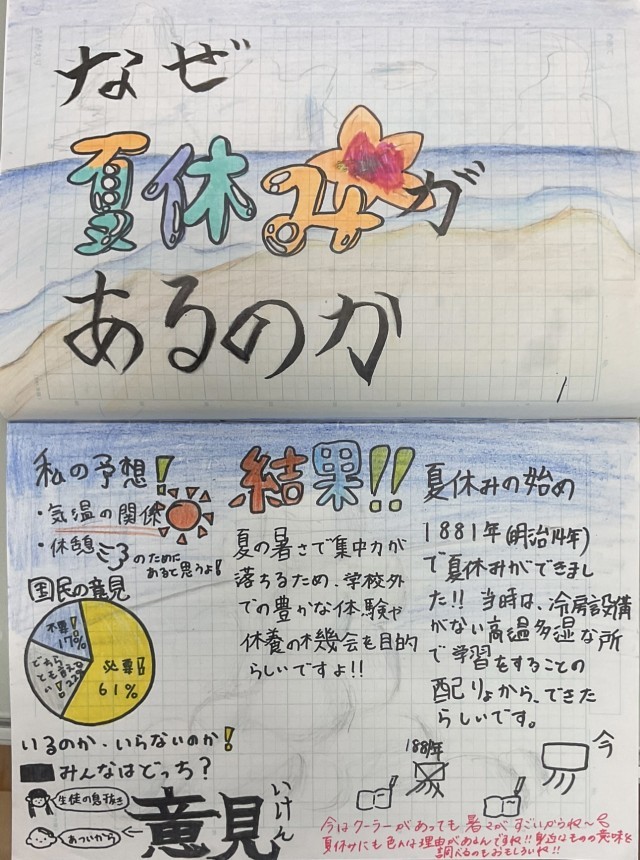 なぜ
夏休みが
あるのか
1
私の予想!
・気温の関係
・休憩
のために
あると思うよ!
国民の意見
不要!
17%
どちら
とも言えな
い!22%
必要!
61%
いるのか、いらないのか!
みんなはどっち?
生徒の息抜き
あついから
意見
いけん
結果!!
夏の暑さで集中力が
落ちるため、学校外
での豊かな体験や
休養の機会も目的
らしいですよ!!
夏休みの始め
1881年(明治14年)
で夏休みができまし
た!!当時は、冷房設備
がない高温多湿な所
で学習をすることの
配りょから、できた
らしいです。
1881年
今
今はクーラーがあっても暑さがすごいからね〜
夏休みにも色んな理由があるんですね!!身近なものの意味を
調べるのもおもしろいね!!